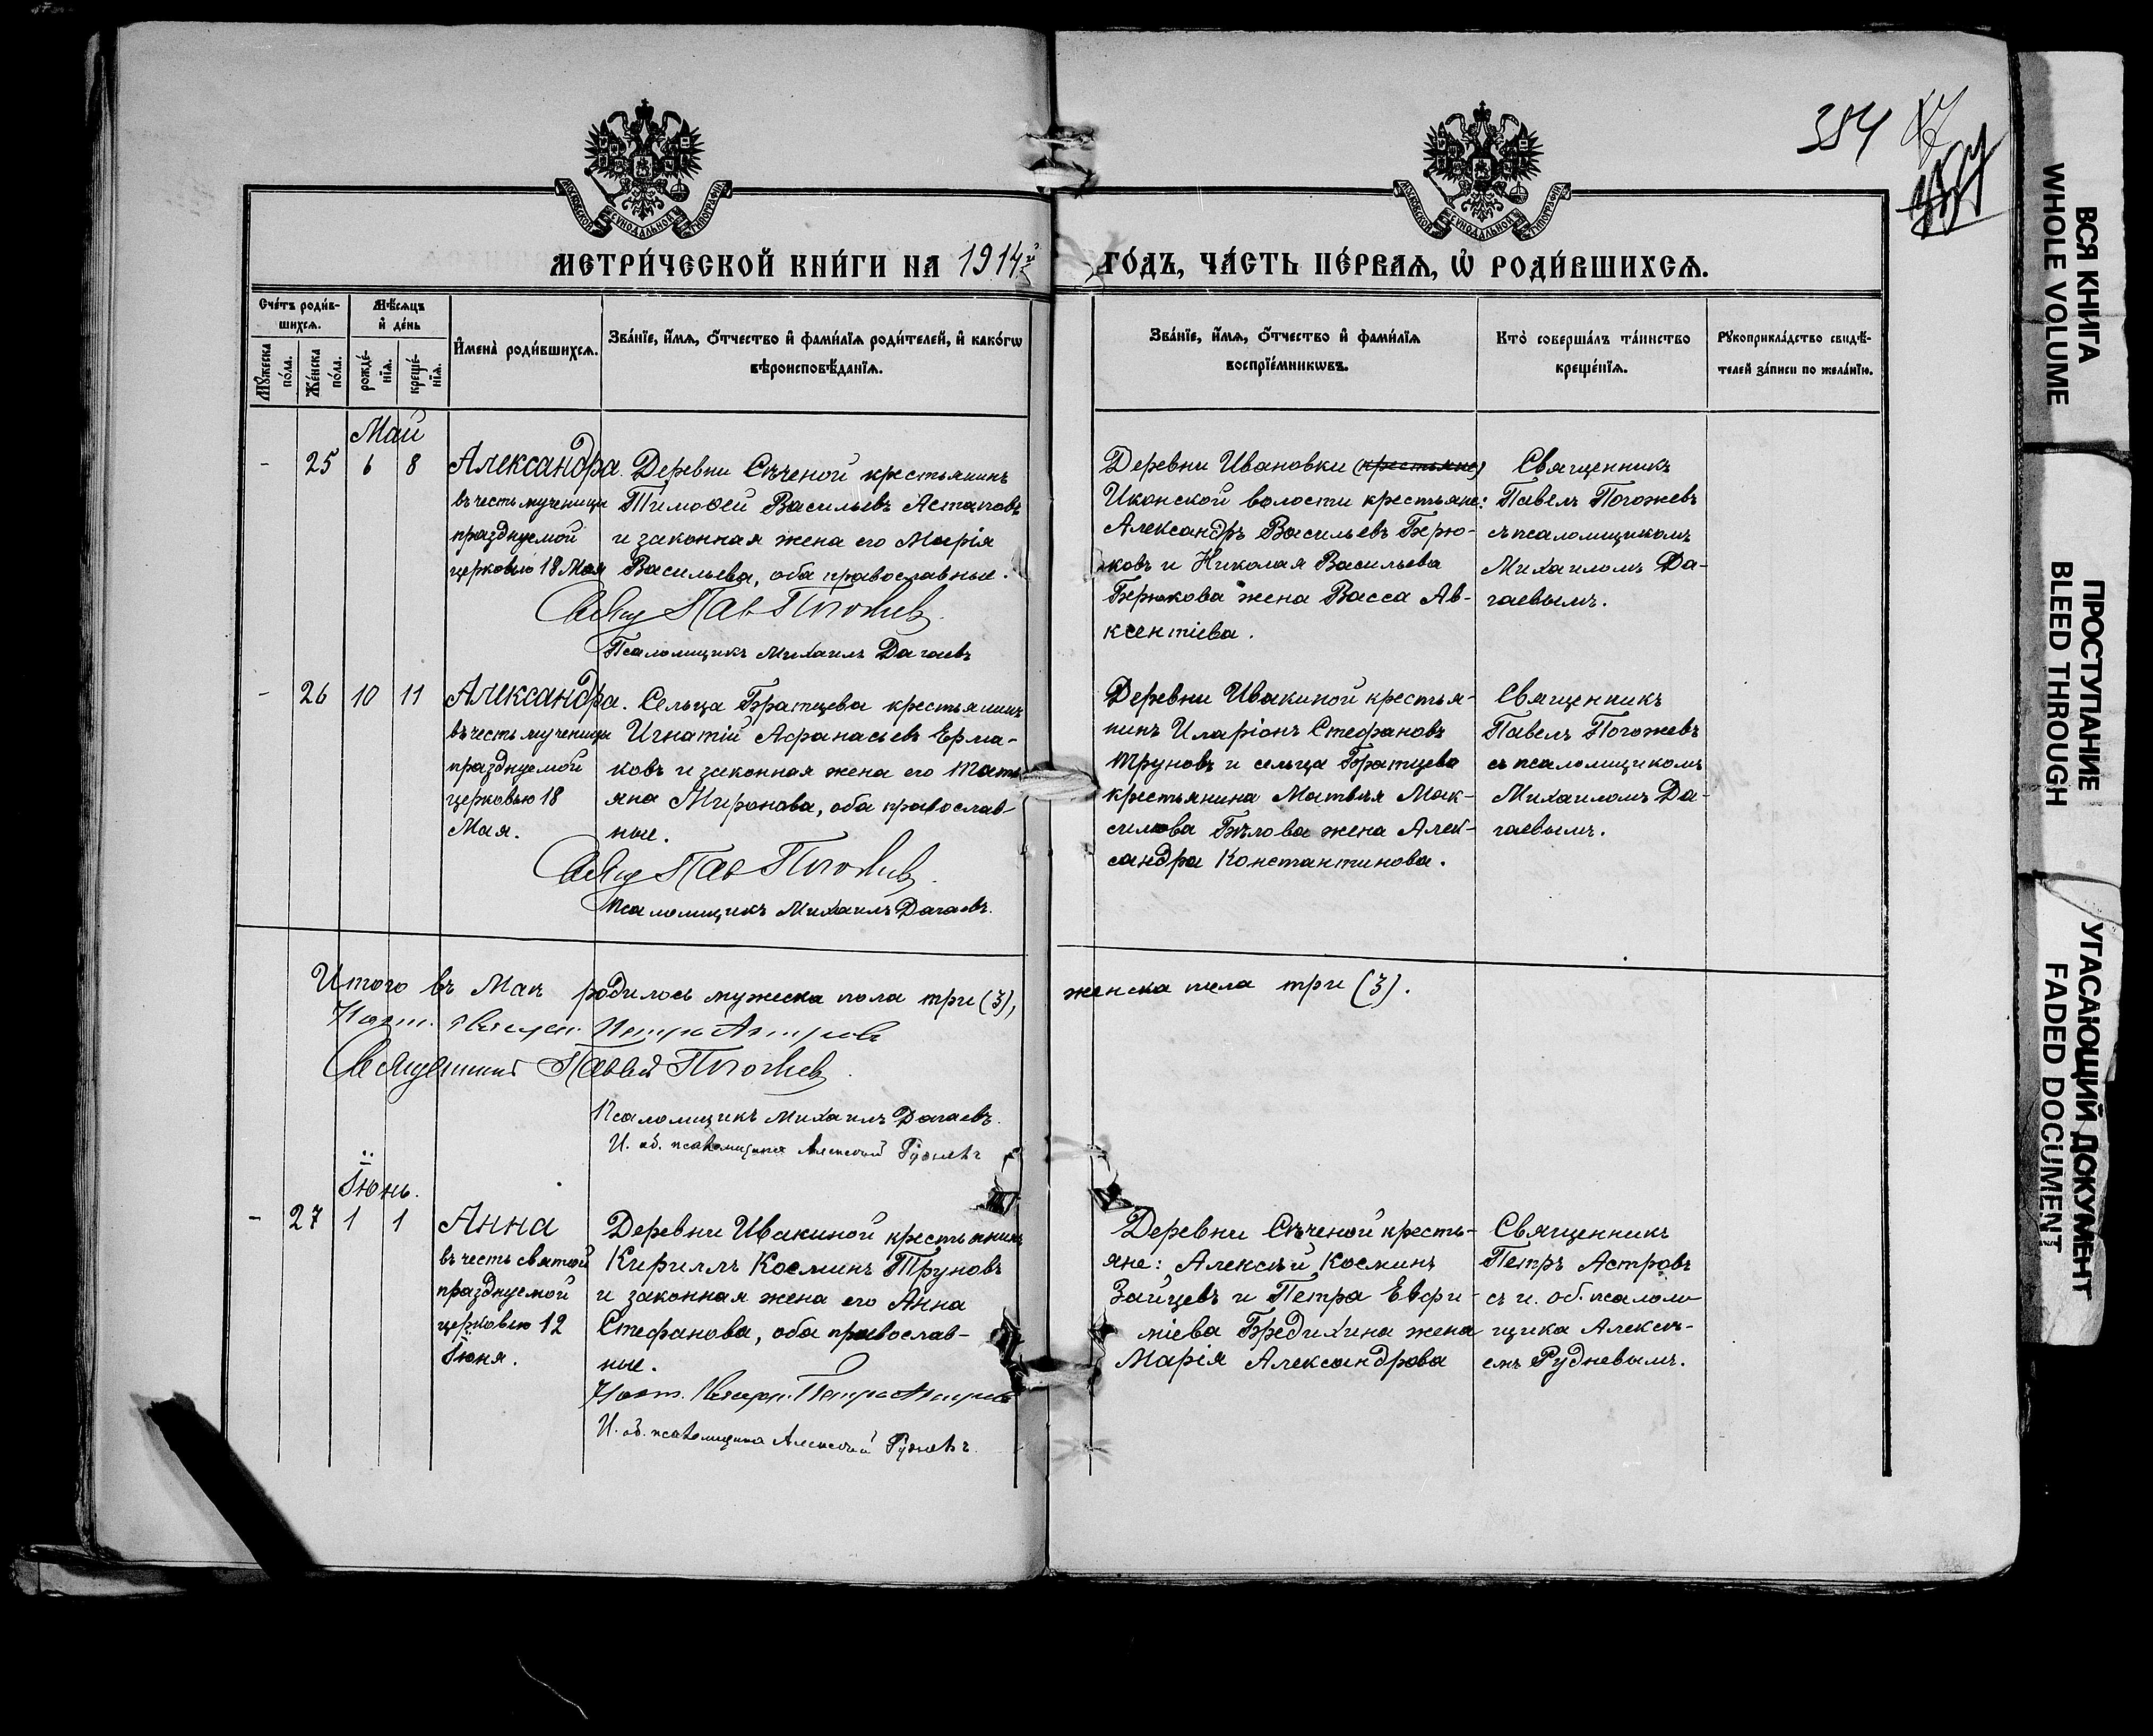 384
МЕТРИ́ЧЕСКОЙ КНИ́ГИ НА 1914й ГО́ДЪ, ЧА́СТЬ ПЕ́РВАѦ, Ѽ РОДИ́ВШИХСѦ.
Сче́тъ роди́в-
шихсѧ.
Мꙋ́жеска по́ла.
Же́нска по́ла.
Мѣ́сѧцъ
и҆ де́нь
рожде́-
нїѧ.
креще́-
нїѧ.
И҆мена̀ роди́вшихсѧ.
Зва́нїе, и҆́мѧ, ѻ҆́тчество и҆ фами́лїѧ роди́телей, и҆ како́гѡ
вѣроисповѣ́данїѧ.
Зва́нїе, и҆́мѧ, ѻ҆́тчество и҆ фами́лїѧ
воспрїе́мникѡвъ.
Кто̀ соверша́лъ та́инство
креще́нїѧ.
Рꙋкоприкла́дство свидѣ́-
телей за́писи по жела́нїю.
Май
- 25 6 8
Александра
въ честь мученицы
празднуемой
церковью 18 Мая
Деревни Сѣченой крестьянинъ
Тимоѳей Васильевъ Астаповъ
и законная жена его Марія
Васильева, оба православные.
Свящ Пав Погожев
Псаломщикъ Михаилъ Дагаевъ
Деревни Ивановки (крестьяне)
Иконской волости крестьяне:
Александръ Васильевъ Бирю-
ковъ и Николая Васильева
Бирюкова жена Васса Ав-
ксентіева.
Священникъ
Павелъ Погожевъ
съ псаломщикомъ
Михаиломъ Да-
гаевымъ.
- 26 10 11
Александра.
въ честь мученицы
празднуемой
церковью 18
Мая.
Сельца Братцева крестьянинъ
Игнатій Аѳанасьевъ Ерма-
ковъ и законная жена его Тать
яна Миронова, оба православ-
ные.
Свящ Пав Погожев
Псаломщикъ Михаилъ Дагаевъ.
Деревни Ивакиной крестья-
нинъ Иларіонъ Стефановъ
Труновъ и сельца Братцева
крестьянина Матвѣя Мак-
симова Бѣлова жена Алек-
сандра Константинова.
Священникъ
Павелъ Погожевъ
съ псаломщикомъ
Михаиломъ Да-
гаевымъ.
Итого въ Маѣ родилось мужеска пола три (3), женска пола три (3).
Наст. Священ. Петръ Астровъ
Священникъ Павел Погожев
Псаломщикъ Михаилъ Дагаевъ.
И. об. псаломщика Алексѣй Рудневъ
Іюнь.
- 27 1 1
Анна
въ честь святой
празднуемой
церковью 12
Іюня.
Деревни Ивакиной крестьянинъ
Кириллъ Косминъ Труновъ
и законная жена его Анна
Стефанова, оба православ-
ные.
Наст. Священ. Петръ Астровъ
И. об. псаломщика Алексѣй Рудневъ
Деревни Сѣченой кресть-
яне: Алексѣй Косминъ
Зайцевъ и Петра Евфи-
міева Бредихина жена
Марія Александрова
Священникъ
Петръ Астровъ
съ и. об. псалом
щика Алексѣ-
емъ Рудневымъ.
ВСЯ КНИГА
WHOLE VOLUME
ПРОСТУПАНИЕ
BLEED THROUGH
УГАСАЮЩИЙ ДОКУМЕНТ
FADED DOCUMENT